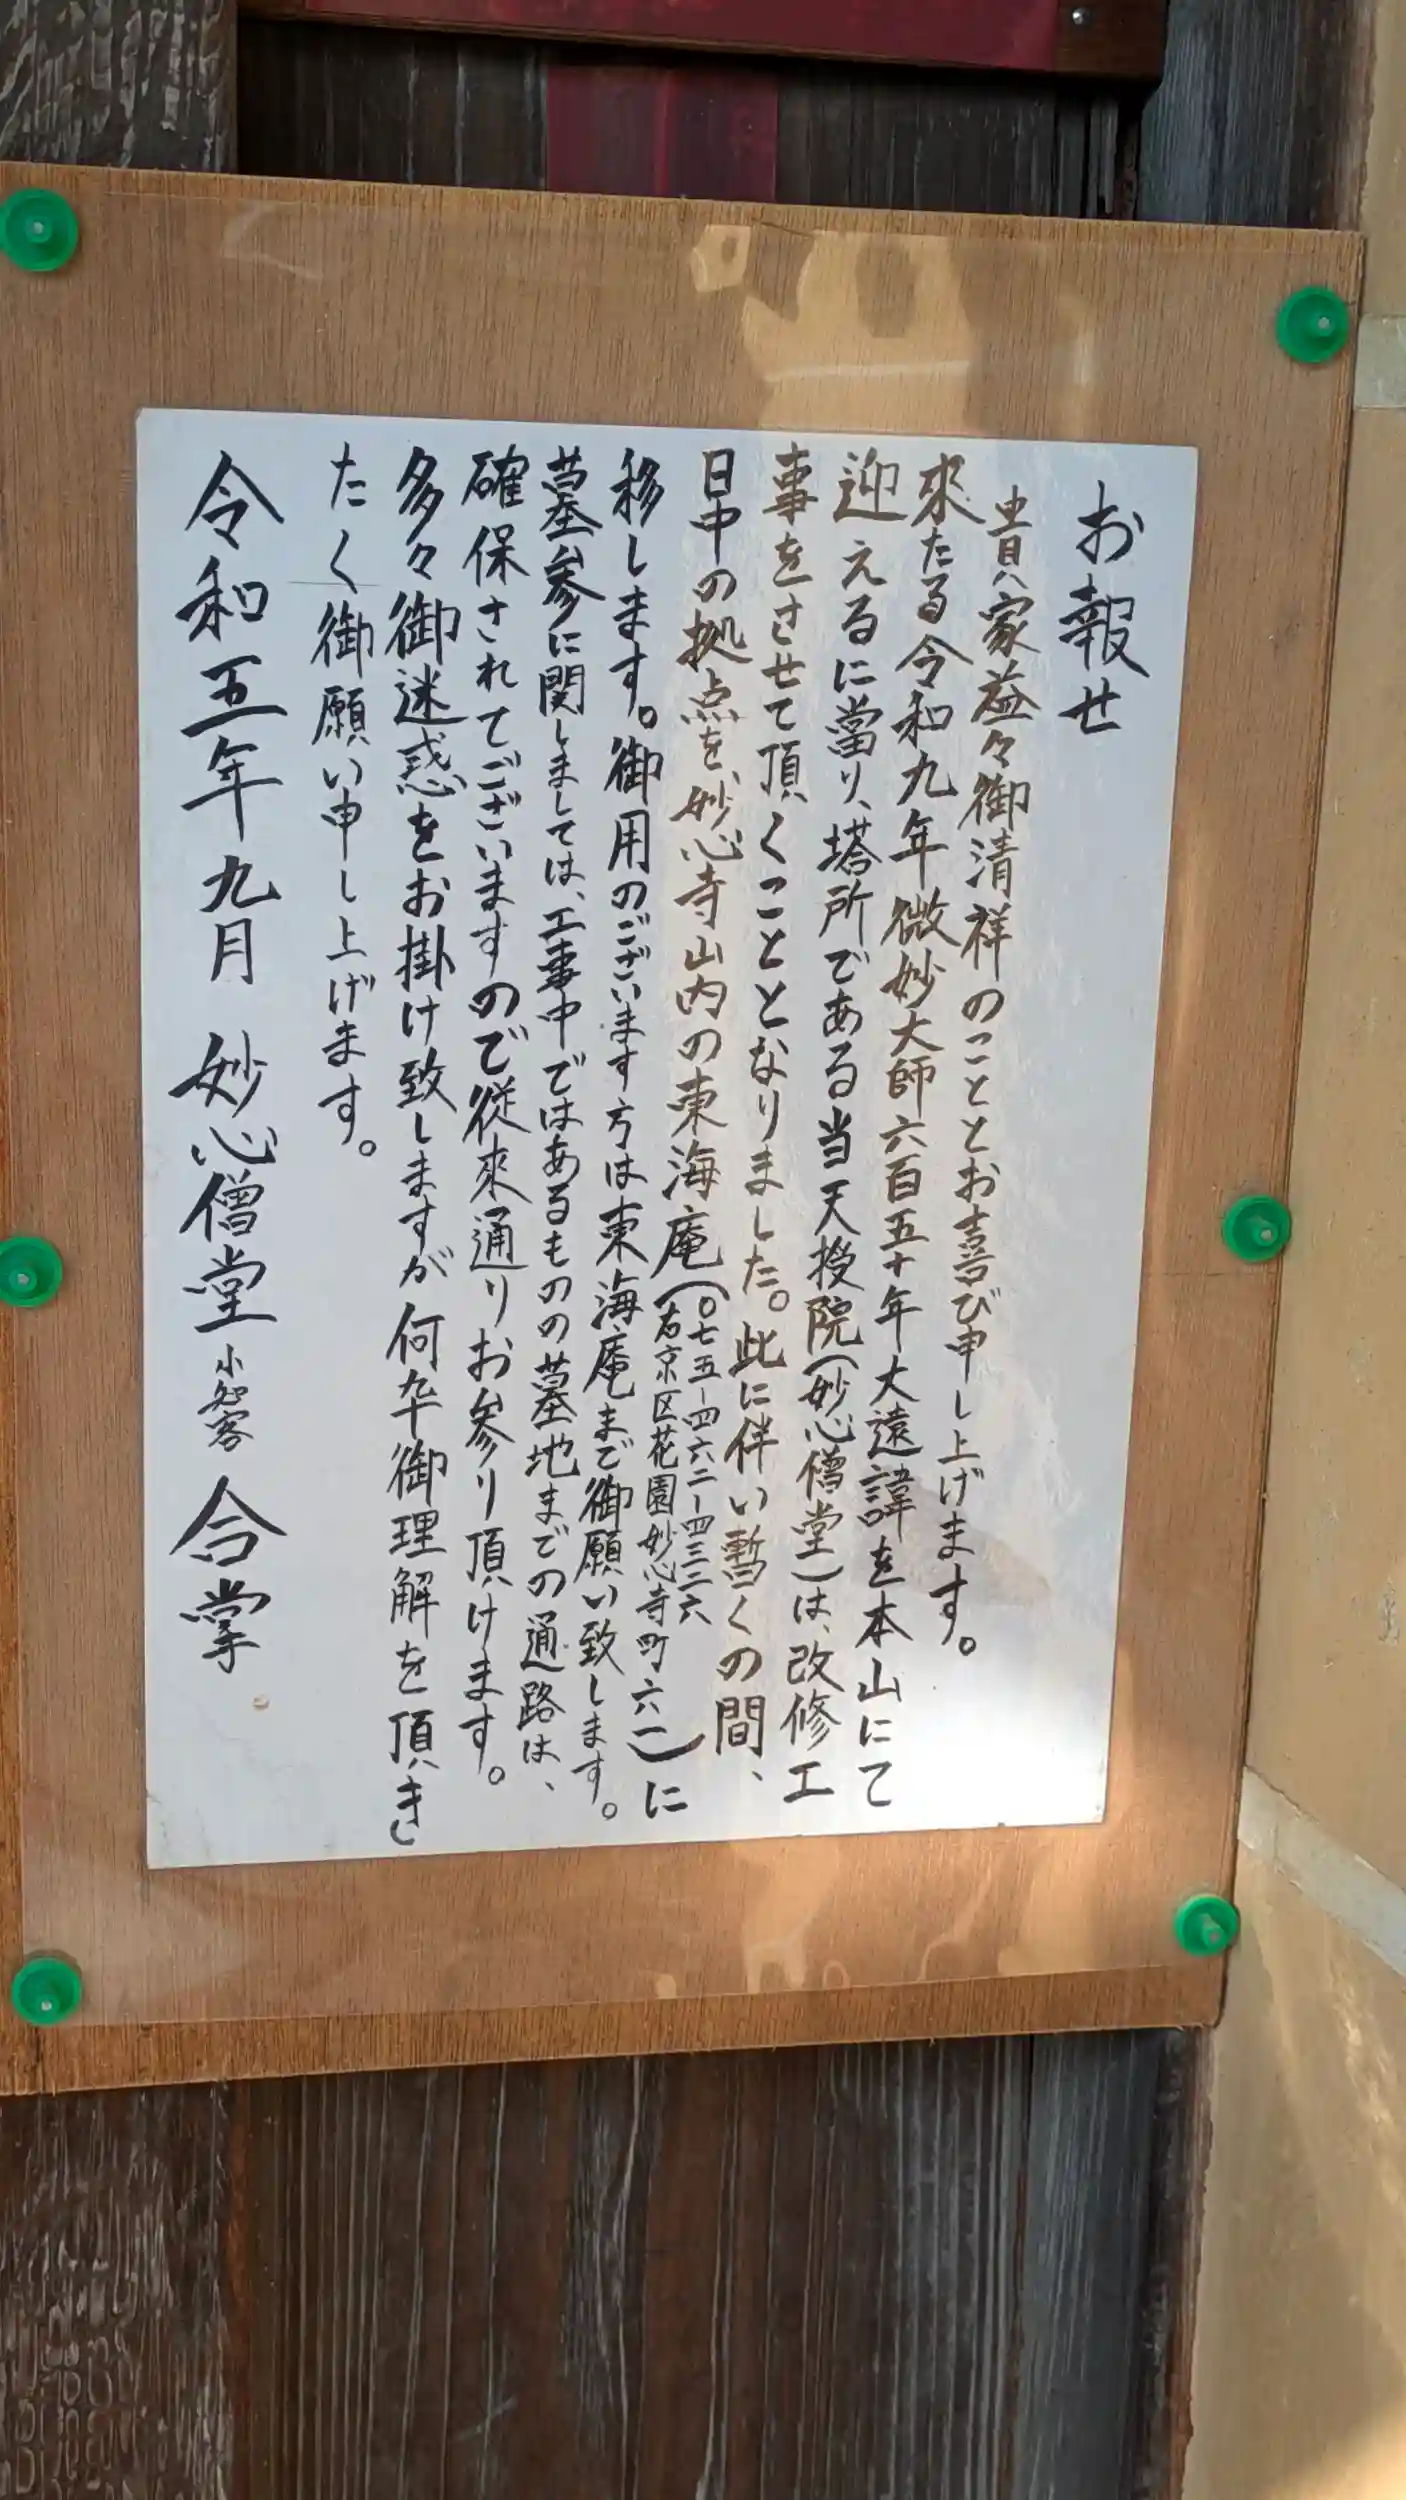 お報せ
貴家益々御清祥のこととお喜び申し上げます。
來たる令和九年微妙大師六百五十年大遠諱を本山にて
迎えるに當り、塔所である当天授院(妙心僧堂)は、改修工
事をさせて頂くこととなりました。此に伴い暫くの間、
日中の拠点を、妙心寺山内の東海庵(〇七五-四六二-四三二六
右京区花園妙心寺町六一)に
移します。御用のございます方は東海庵まで御願い致します。
墓参に関しましては、工事中ではあるものの墓地までの通路は、
確保されてございますので従來通りお参り頂けます。
多々御迷惑をお掛け致しますが何卒御理解を頂き
たく御願い申し上げます。
令和五年九月 妙心僧堂 小知客 合掌